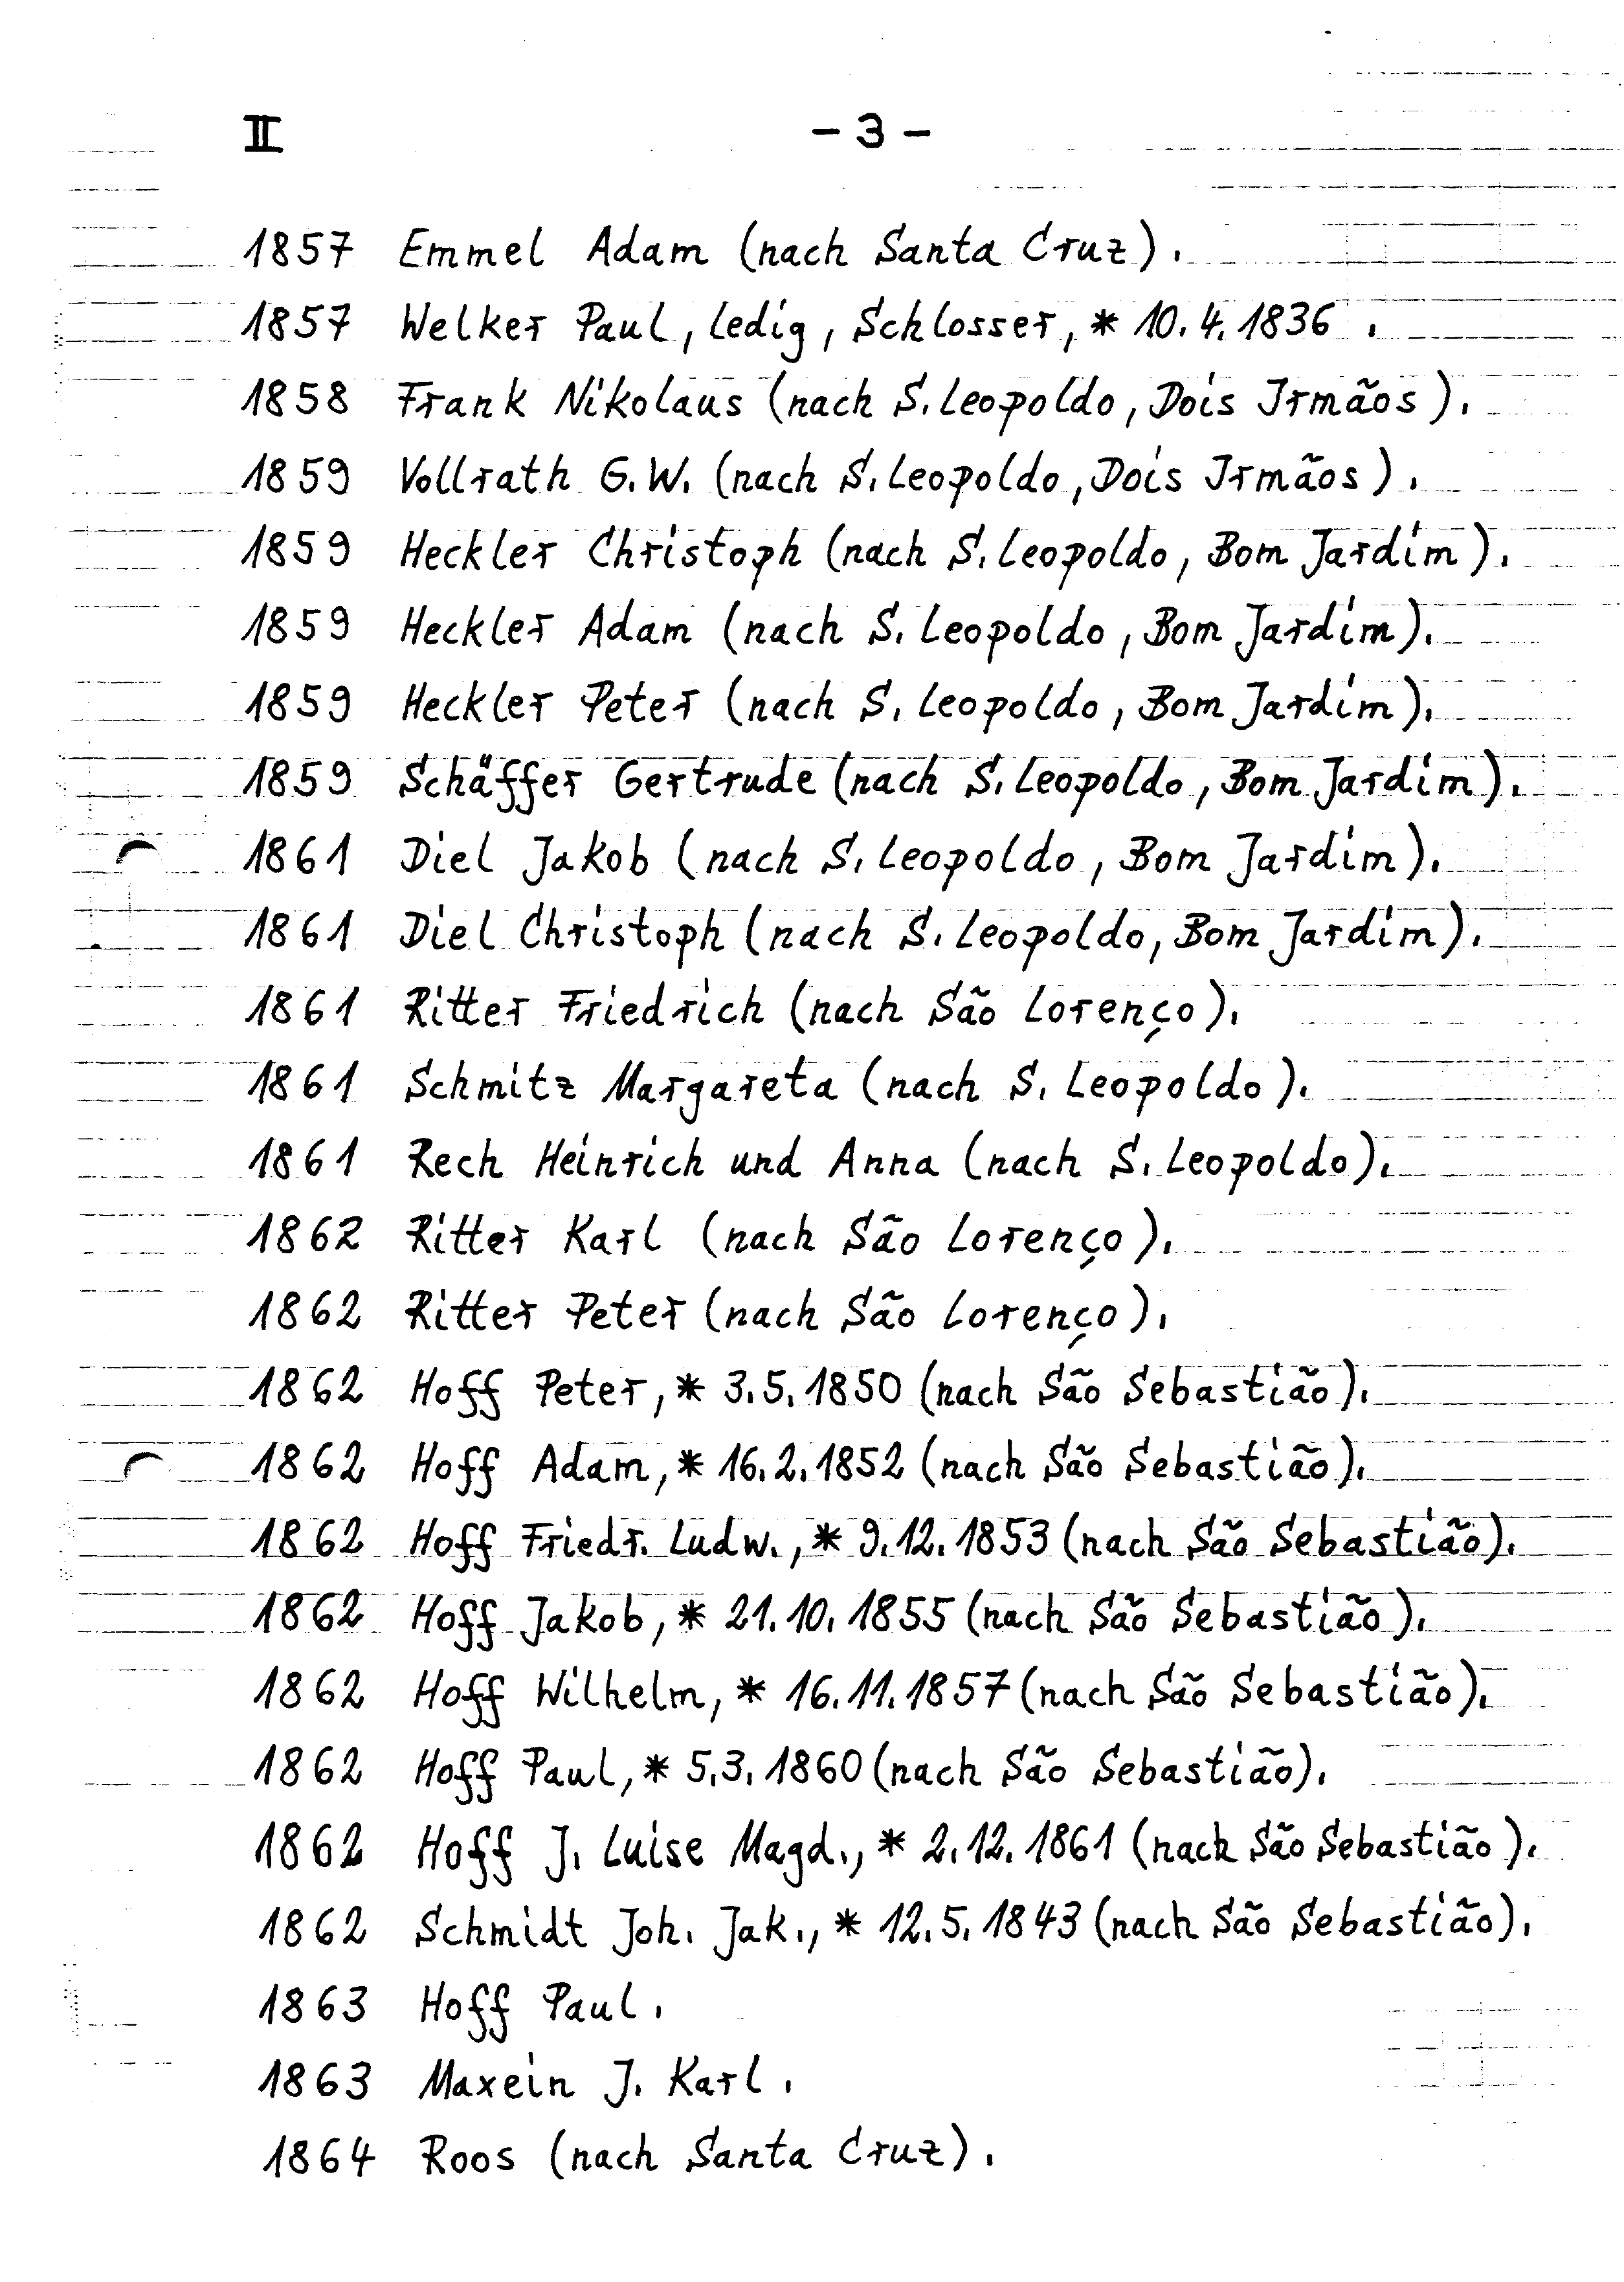 II - 3 -
1857 Emmel Adam (nach Santa Cruz).
1857 Welker Paul, ledig, Schlosser, * 10.4.1836.
1858 Frank Nikolaus (nach S. Leopoldo, Dois Irmãos).
1859 Vollrath G.W. (nach S. Leopoldo, Dois Irmãos).
1859 Heckler Christoph (nach S. Leopoldo, Bom Jardim).
1859 Heckler Adam (nach S. Leopoldo, Bom Jardim).
1859 Heckler Peter (nach S. Leopoldo, Bom Jardim).
1859 Schäffer Gertrude (nach S. Leopoldo, Bom Jardim).
1861 Diel Jakob (nach S. Leopoldo, Bom Jardim).
1861 Diel Christoph (nach S. Leopoldo, Bom Jardim).
1861 Ritter Friedrich (nach São Lorenço).
1861 Schmitz Margareta (nach S. Leopoldo).
1861 Rech Heinrich und Anna (nach S. Leopoldo).
1862 Ritter Karl (nach São Lorenço).
1862 Ritter Peter (nach São Lorenço).
1862 Hoff Peter, * 3.5.1850 (nach São Sebastião).
1862 Hoff Adam, * 16.2.1852 (nach São Sebastião).
1862 Hoff Friedr. Ludw., * 9.12.1853 (nach São Sebastião).
1862 Hoff Jakob, * 21.10.1855 (nach São Sebastião).
1862 Hoff Wilhelm, * 16.11.1857 (nach São Sebastião).
1862 Hoff Paul, * 5.3.1860 (nach São Sebastião).
1862 Hoff J. Luise Magd., * 2.12.1861 (nach São Sebastião).
1862 Schmidt Joh. Jak., * 12.5.1843 (nach São Sebastião).
1863 Hoff Paul.
1863 Maxein J. Karl.
1864 Roos (nach Santa Cruz).